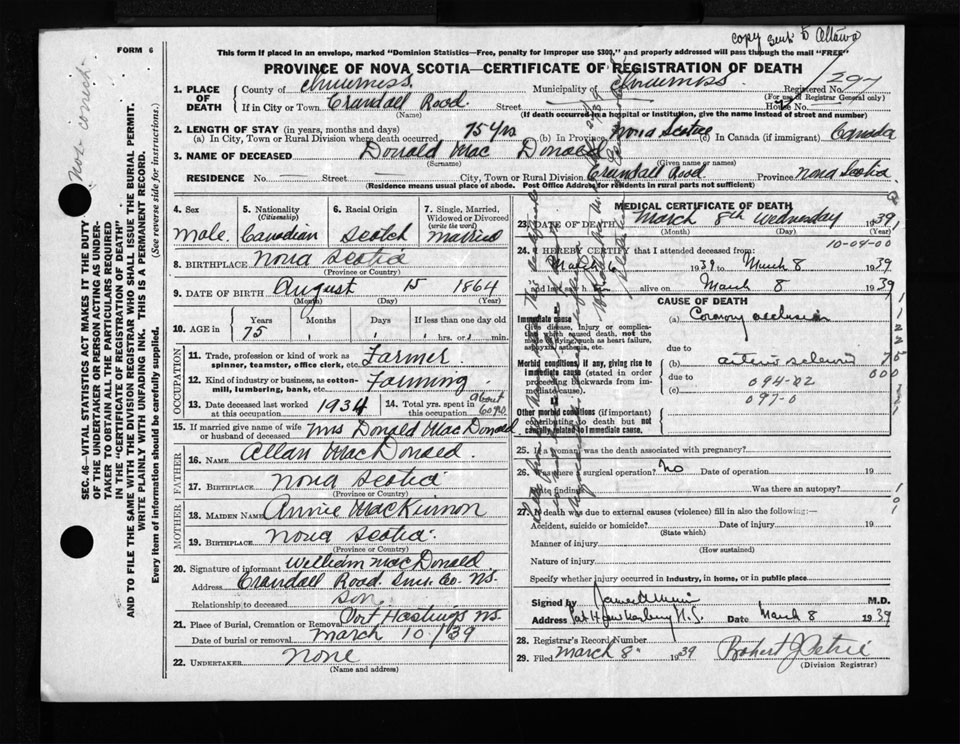 copy sent to Ottawa
FORM 6
This form if placed in an envelope, marked "Dominion Statistics—Free, penalty for improper use $300," and properly addressed will pass through the mail "FREE"
PROVINCE OF NOVA SCOTIA—CERTIFICATE OF REGISTRATION OF DEATH
1. PLACE OF DEATH
County of Inverness. Municipality of Inverness Registered No. 297
(For use of Registrar General only)
If in City or Town Crandall Road. Street House No.
(Name) (If death occurred in a hospital or institution, give the name instead of street and number)
2. LENGTH OF STAY (in years, months and days)
(a) In City, Town or Rural Division where death occurred 75 yrs (b) In Province Nova Scotia (c) In Canada (if immigrant) Canada
3. NAME OF DECEASED Donald Mac Donald
(Surname) (Given name or names)
RESIDENCE No. Street City, Town or Rural Division Crandall Road. Province Nova Scotia
(Residence means usual place of abode. Post Office Address for residents in rural parts not sufficient)
SEC. 46—VITAL STATISTICS ACT MAKES IT THE DUTY
OF THE UNDERTAKER OR PERSON ACTING AS UNDER-
TAKER TO OBTAIN ALL THE PARTICULARS REQUIRED
IN THE "CERTIFICATE OF REGISTRATION OF DEATH"
AND TO FILE THE SAME WITH THE DIVISION REGISTRAR WHO SHALL ISSUE THE BURIAL PERMIT.
WRITE PLAINLY WITH UNFADING INK. THIS IS A PERMANENT RECORD.
Every item of information should be carefully supplied. (See reverse side for instructions.)
4. Sex 5. Nationality (Citizenship) 6. Racial Origin 7. Single, Married, Widowed or Divorced (write the word)
Male. Canadian Scotch Married
8. BIRTHPLACE Nova Scotia
(Province or Country)
9. DATE OF BIRTH August 15 1864
(Month) (Day) (Year)
10. AGE in Years Months Days If less than one day old
75 hrs. or min.
OCCUPATION
11. Trade, profession or kind of work as spinner, teamster, office clerk, etc. Farmer
12. Kind of industry or business, as cotton-mill, lumbering, bank, etc. Farming
13. Date deceased last worked at this occupation 1934 14. Total yrs. spent in this occupation about 60 yrs.
15. If married give name of wife or husband of deceased Mrs Donald MacDonald
FATHER
16. Name Allan MacDonald.
17. Birthplace Nova Scotia
(Province or Country)
MOTHER
18. MAIDEN NAME Annie MacKinnon
19. BIRTHPLACE Nova Scotia.
(Province or Country)
20. Signature of informant William MacDonald
Address Crandall Road. Inv. Co. N.S.
Relationship to deceased son.
21. Place of Burial, Cremation or Removal Port Hastings N.S.
Date of burial or removal March 10/39
22. UNDERTAKER None
(Name and address)
MEDICAL CERTIFICATE OF DEATH
23. DATE OF DEATH March 8th Wednesday 1939
(Month) (Day) (Year)
10-04-00
24. I HEREBY CERTIFY that I attended deceased from
1939 to March 8 1939
and last saw h alive on March 8 1939
CAUSE OF DEATH
Immediate cause
Give disease, injury or complication which caused death, not the mode of dying, such as heart failure, asphyxia, asthenia, etc.
(a) Coronary occlusion
due to
Morbid conditions, if any, giving rise to immediate cause (stated in order proceeding backwards from immediate cause).
(b) arterio sclerosis
due to 094-02
(c) 097-0
Other morbid conditions (if important) contributing to death but not causally related to immediate cause.
25. If a woman, was the death associated with pregnancy?
26. Was there a surgical operation? No Date of operation 19
State findings Was there an autopsy?
27. If death was due to external causes (violence) fill in also the following:—
Accident, suicide or homicide? Date of injury 19
(State which)
Manner of injury
(How sustained)
Nature of injury
Specify whether injury occurred in industry, in home, or in public place
Signed by M.D.
Address Port Hawkesbury N.S. Date March 8 1939
28. Registrar's Record Number
29. Filed March 8 1939 Robert J. Petrie
(Division Registrar)